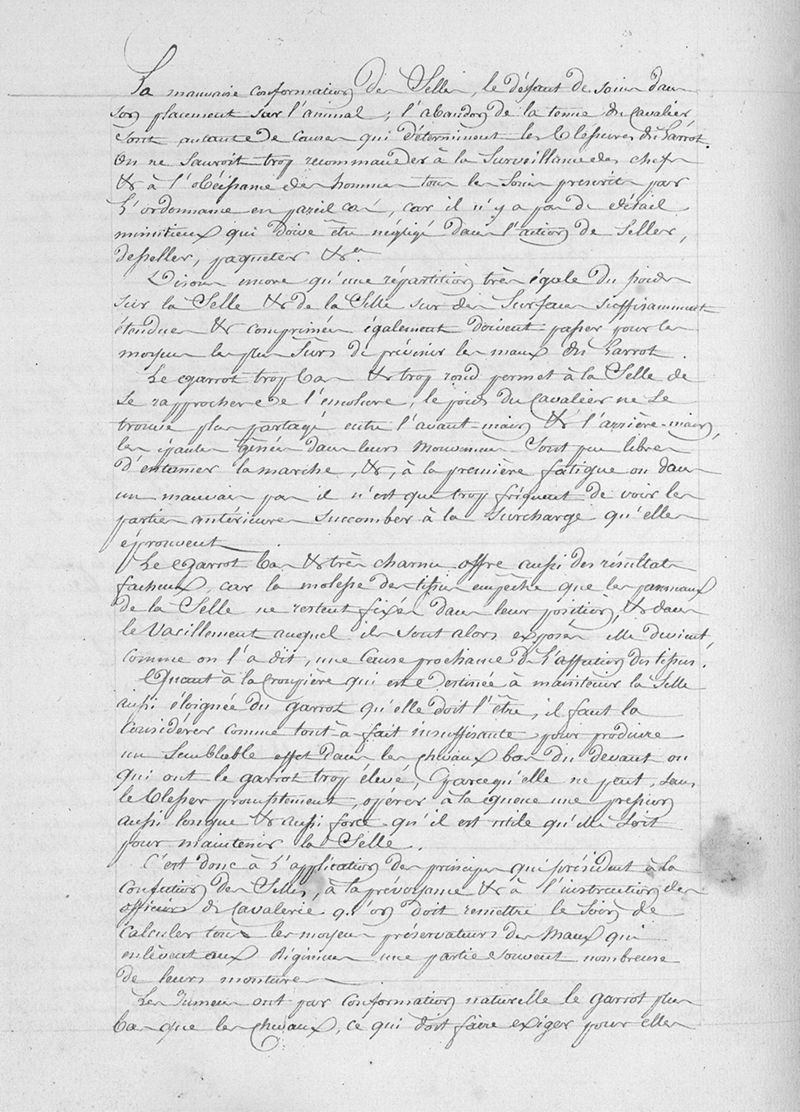 La mauvaise conformation des Selles, le défaut de soins dans
son placement sur l'animal; l'abandon de la tenue du Cavalier
Sont autant de Causes qui déterminent les blessures du Garrot.
On ne Sauroit trop recommander à la Surveillance des chefs
& à l'obéissance des hommes tous les Soins prescrits par
l'ordonnance en pareil cas, car il n'y a pas de détail
minutieux qui doive être négligé dans l'action de Seller,
desseller, paqueter &a.
Disons encore qu'une répartition très égale du poids
sur la Selle & de la Selle sur des Surfaces suffisamment
étendues & comprimées également doivent passer pour les
moyens les plus Surs de prévenir les maux du Garrot.
Le Garrot trop bas & trop rond permet à la Selle de
se rapprocher de l'encolure, le poids du Cavalier ne se
trouve plus partagé entre l'avant main & l'arrière-main,
les épaules gênées dans leurs Mouvemens Sont peu libres
d'entamer la marche, &, à la première fatigue ou dans
un mauvais pas il n'est que trop fréquent de voir les
parties antérieures Succomber à la Surcharge qu'elles
éprouvent
Le Garrot bas & très charnu offre aussi des résultats
facheux, car la molesse des tissus empêche que les panneaux
de la Selle ne restent fixés dans leur position, & dans
le Vacillement auquel ils Sont alors exposés elle devient,
comme on l'a dit, une Cause prochaine de l'affection des tissus.
Quant à la Croupière qui est Destinée à maintenir la Selle
aussi éloignée du garrot qu'elle doit l'être, il faut la
Considérer comme tout à fait insuffisante pour produire
un Semblable effet dans les chevaux bas du devant ou
qui ont le garrot trop élevé, parcequ'elle ne peut, sans
le blesser promptement, opérer à la queue une pression
aussi longue & aussi forte qu'il est utile qu'elle soit
pour maintenir la Selle.
C'est donc à l'application des principes qui président à la
Confection des Selles, à la prévoyance & à l'instruction des
officiers de Cavalerie qu'on doit remettre le Soin de
Calculer tous les moyens préservateurs des Maux qui
enlèvent aux Régimens une partie Souvent nombreuse
de leurs montures
Les Jumens ont par Conformation naturelle le garrot plus
bas que les chevaux, ce qui doit faire exiger pour elles